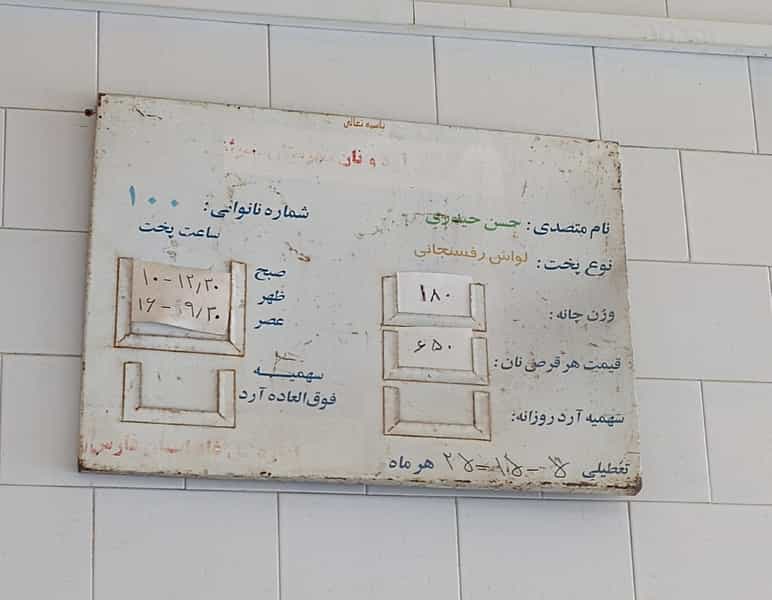 باسمه تعالی
و نان
نام متصدی: حسن حیدری
نوع پخت: لواش رفسنجانی
وزن چانه:
۱۸۰
قیمت هر قرص نان:
۶۵۰
سهمیه آرد روزانه:
تعطیلی ۵ – ۱۵ – ۲۵ هر ماه
شماره نانوائی: ۱۰۰
ساعت پخت
صبح
ظهر
عصر
۱۰ – ۱۲/۳۰
۱۶ – ۱۹/۳۰
سهمیـــه
فوق‌العاده آرد
استان فارس